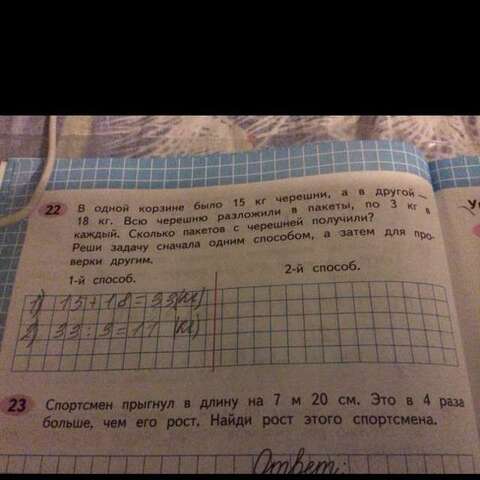 22 В одной корзине было 15 кг черешни, а в другой —
18 кг. Всю черешню разложили в пакеты, по 3 кг в
каждый. Сколько пакетов с черешней получили?
Реши задачу сначала одним способом, а затем для про-
верки другим.
1-й способ.
2-й способ.
1) 15+18=33(кг)
2) 33:3=11
23 Спортсмен прыгнул в длину на 7 м 20 см. Это в 4 раза
больше, чем его рост. Найди рост этого спортсмена.
Ответ: